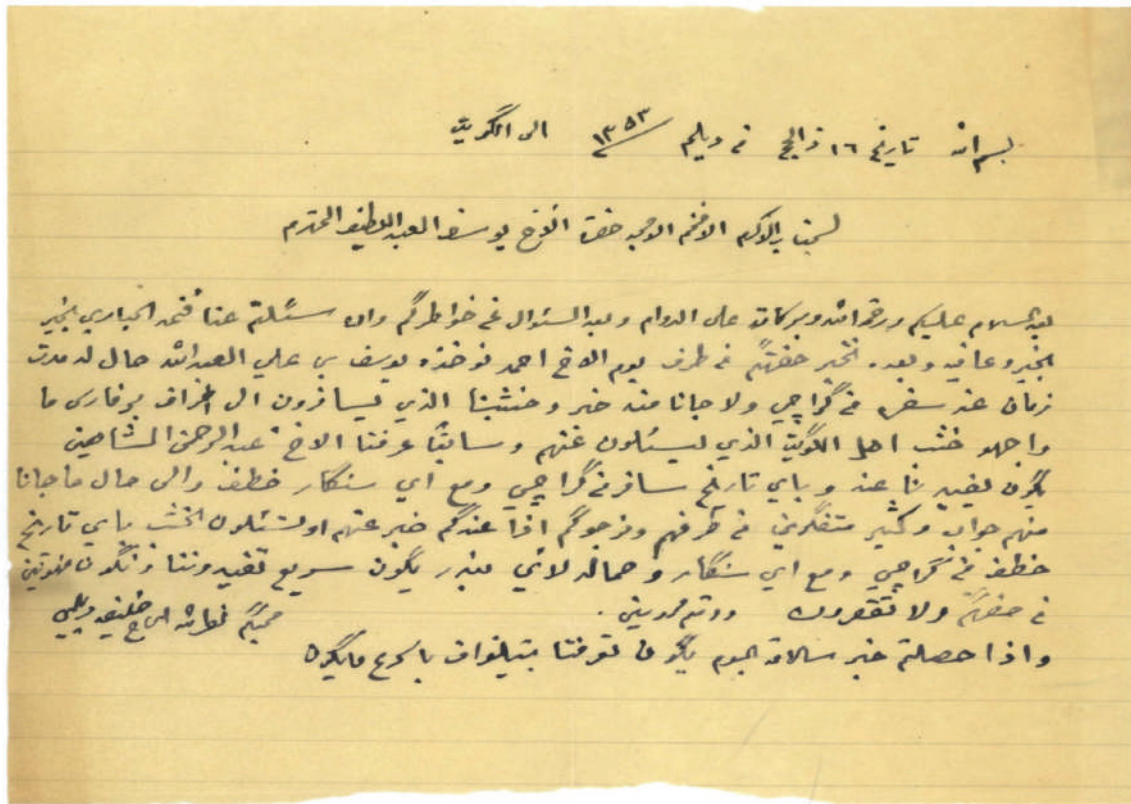 بسم الله تاريخ ١٦ ذي الحج في ديلم ١٣٥٣ الى الكويت
لجناب الاكرم الافخم الامجد حضرة الاخ يوسف العبد اللطيف المحترم
بعد السلام عليكم ورحمة الله وبركاته على الدوام وبعد السئوال عن خواطركم وان سئلتم عنا فنحمد الباري بخير
الخير وعافيه وبعد. نخبر حضرتكم من طرف بوم الاخ احمد نوخذه يوسف بن علي العبدالله حال له مدت
زمان عند سفره من كراچي ولا جانا منه خبر وخشبنا الذي يسافرون الى اطراف بوفارس ما
واجهو خشب اهل الكويت الذي يسئلون عنهم وسابقا عرفنا الاخ عبد الرحمن الشاهين
يكون يفيدنا عنه وباي تاريخ سافر من كراچي ومع اي سنكار خطف والى حال ما جانا
منهم جواب وكثير متفكرين من طرفهم ونرجوكم اذا عندكم خبر عنهم او تسئلون الخشب باي تاريخ
خطف من كراچي ومع اي سنكار وحماله لاي بندر يكون سريع تفيدوننا ونكون ممنونين
من حضرتكم ولا تقصرون ودمتم محروسين.
محبكم
واذا حصلتم خبر سلامة البوم يكون تعرفنا بتيلغراف باسرع مايكون